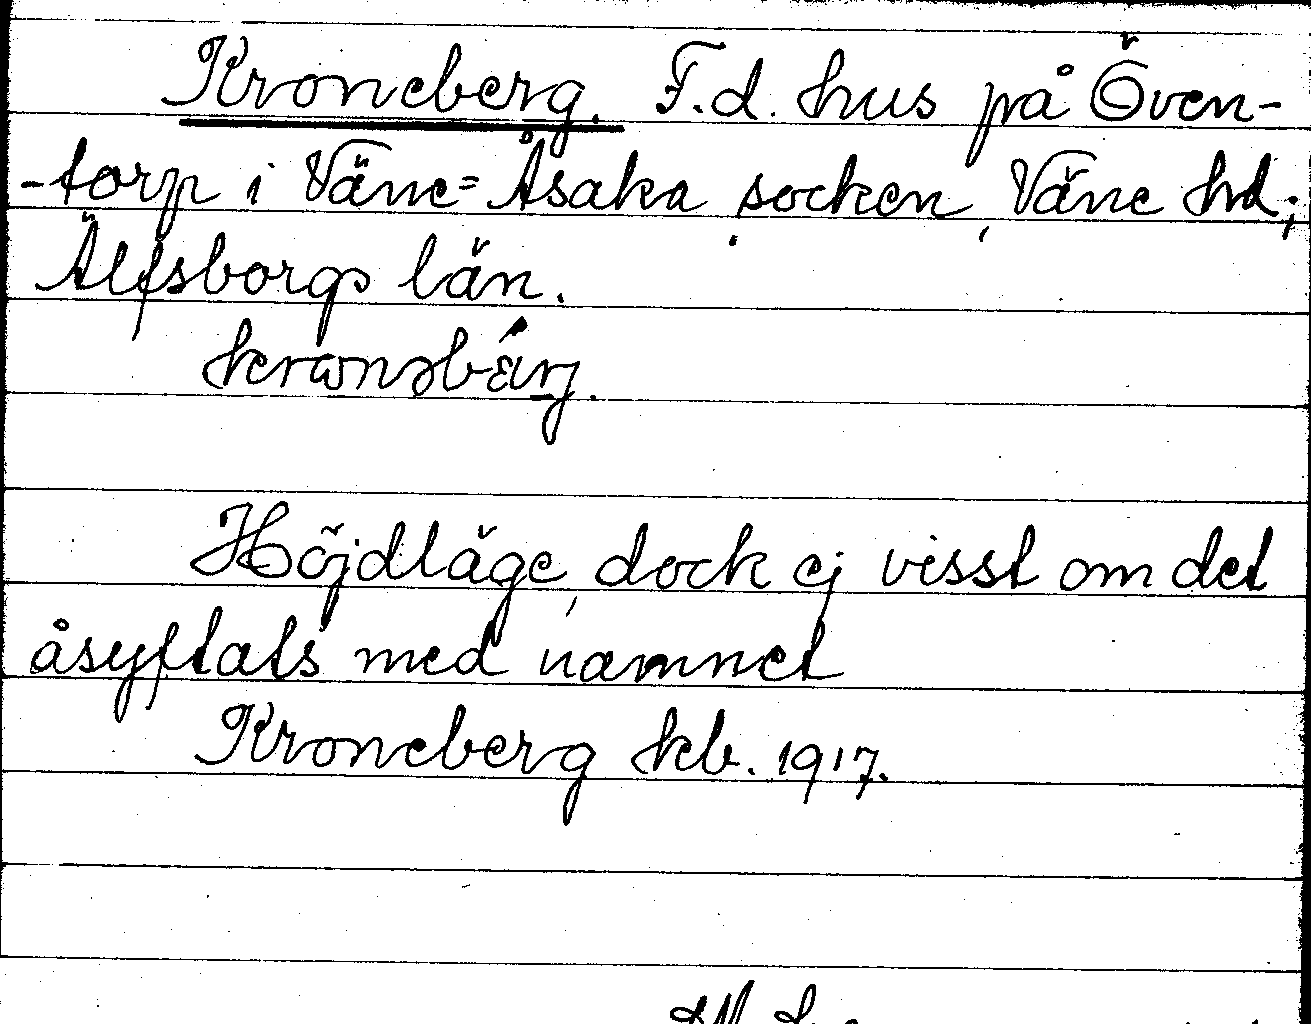 Kroneberg. F.d. hus på Öven-
-torp i Väne=Åsaka socken, Väne hd;
Älfsborgs län.
Höjdläge, dock ej visst om det
åsyftats med namnet
Kroneberg kb. 1917.